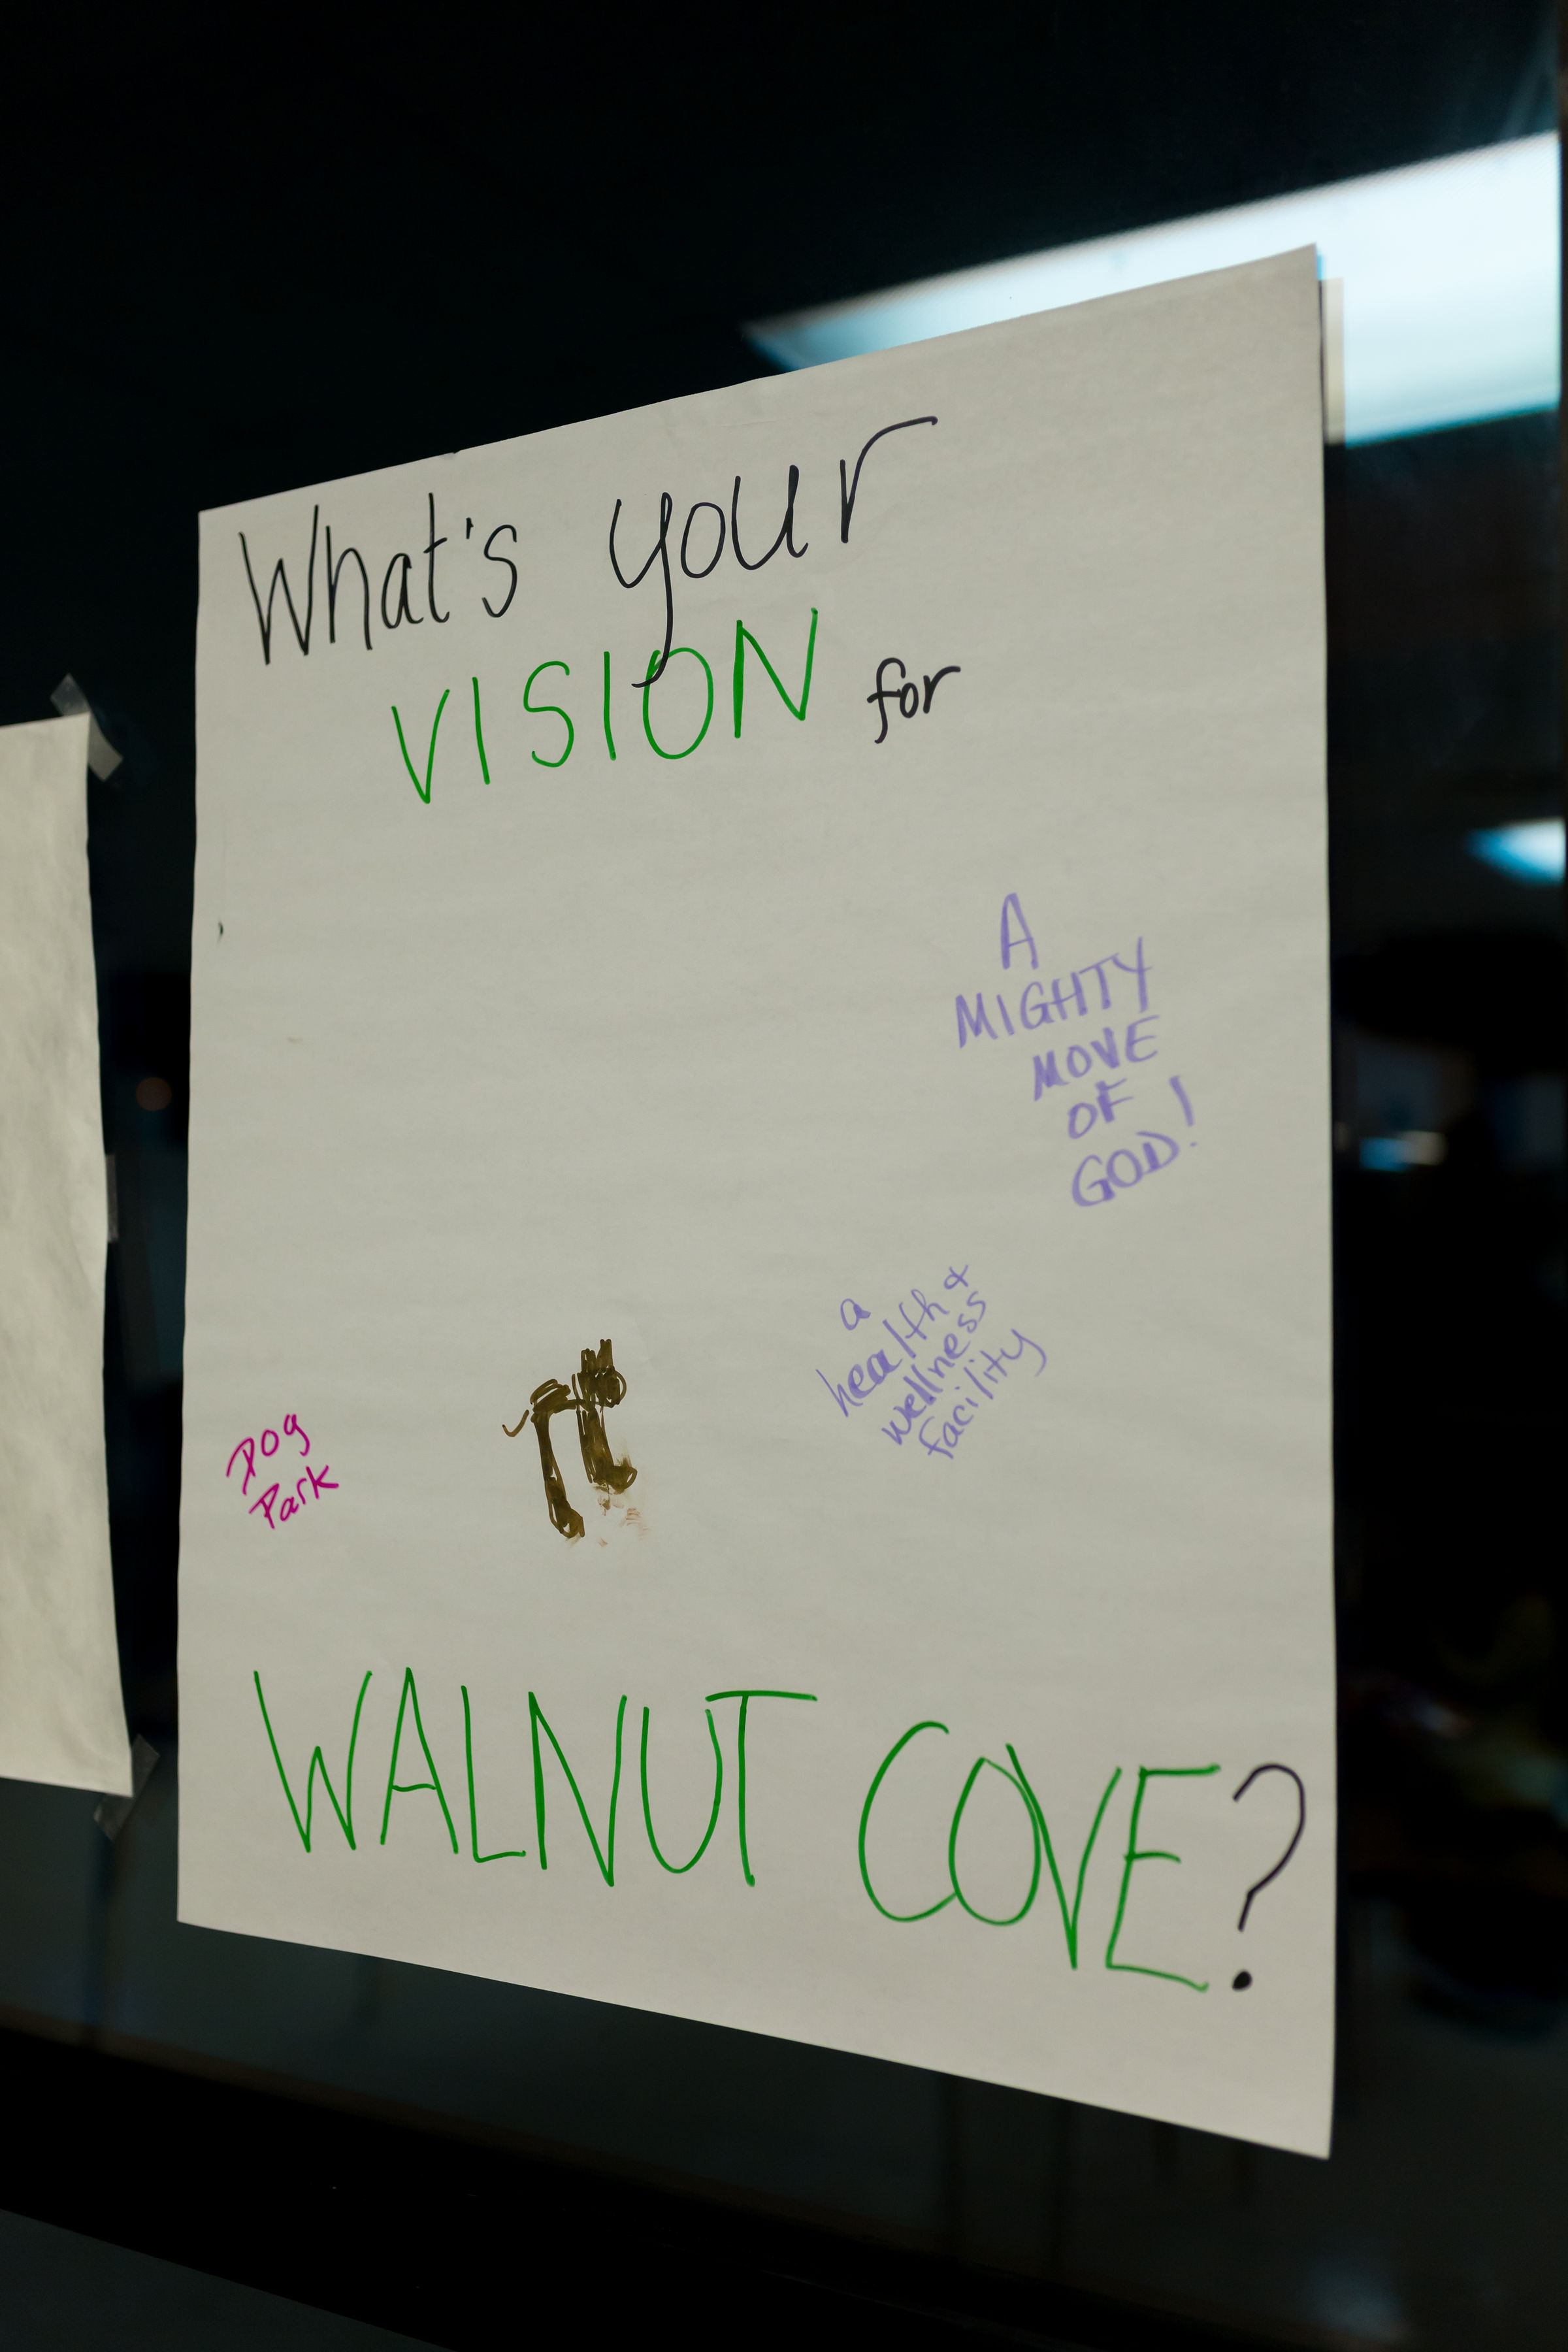 What's your
VISION for
A
MIGHTY
MOVE
OF
GOD!
a
health &
wellness
facility
Dog
Park
WALNUT COVE?